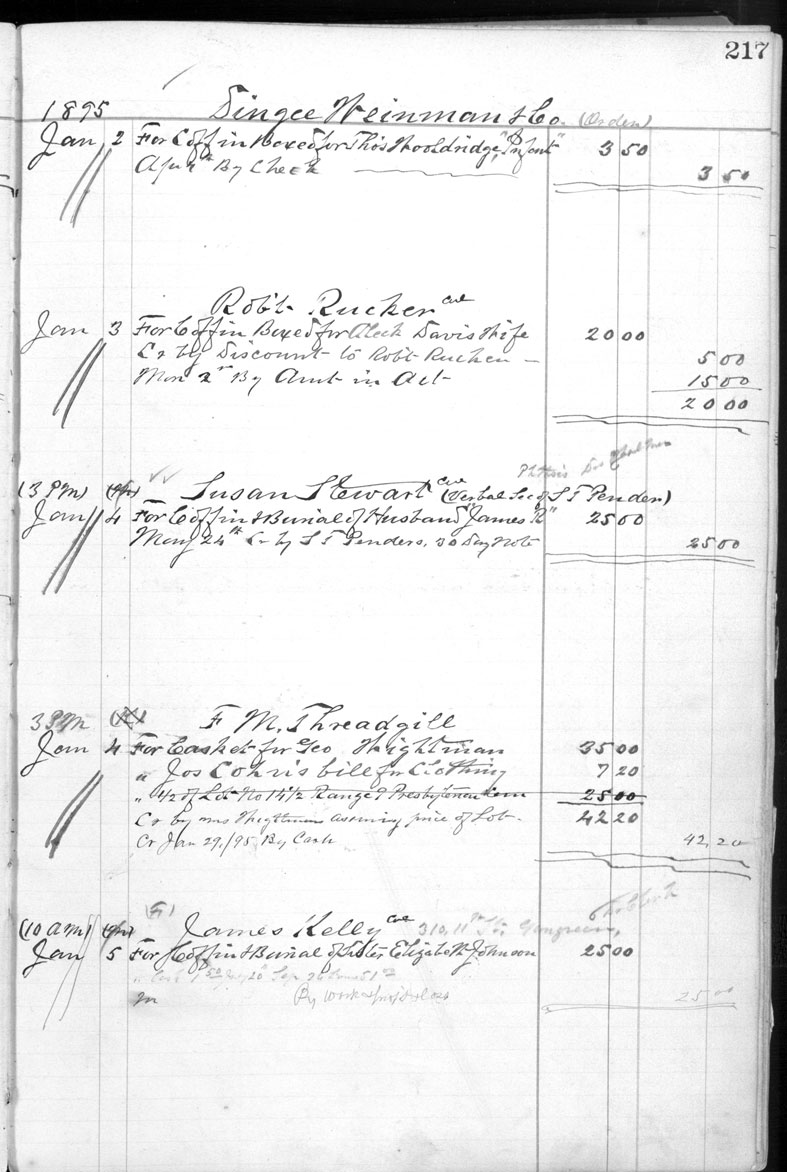 217
1895 Singee Weinman & Co. (Order)
Jan 2 For Coffin Boxed for Tho's Wooldridge, "Infant" 3 50
By Check 3 50
Rob't Rucker Col
Jan 3 For Coffin Boxed for Aleck Davis Wife 20 00
Cr by Discount to Rob't Rucker 5 00
By Amt in Act 15 00
20 00
Phthisis Dr
(3 PM) Susan Stewart Col (Verbal Sec of S T Pender)
Jan 4 For Coffin & Burial of Husband "James R" 25 00
May 24th Cr by S T Penders, 30 Day Note 25 00
3 PM F M. Threadgill
Jan 4 For Casket for Geo Wightman 35 00
" Jos Cohn's bill for Clothing 7 20
" 1/2 of Lot No 14 1/2 Range 9 Presbyterian Cem 25 00
Cr by Mrs Wightman assuming price of Lot 42 20
Cr Jan 29/95 By Cash 42.20
(10 AM) James Kelly Col 310, 11th St. Gangreen,
Jan 5 For Coffin & Burial of Sister Elizabeth Johnson 25 00
By work & profit & loss 25 00